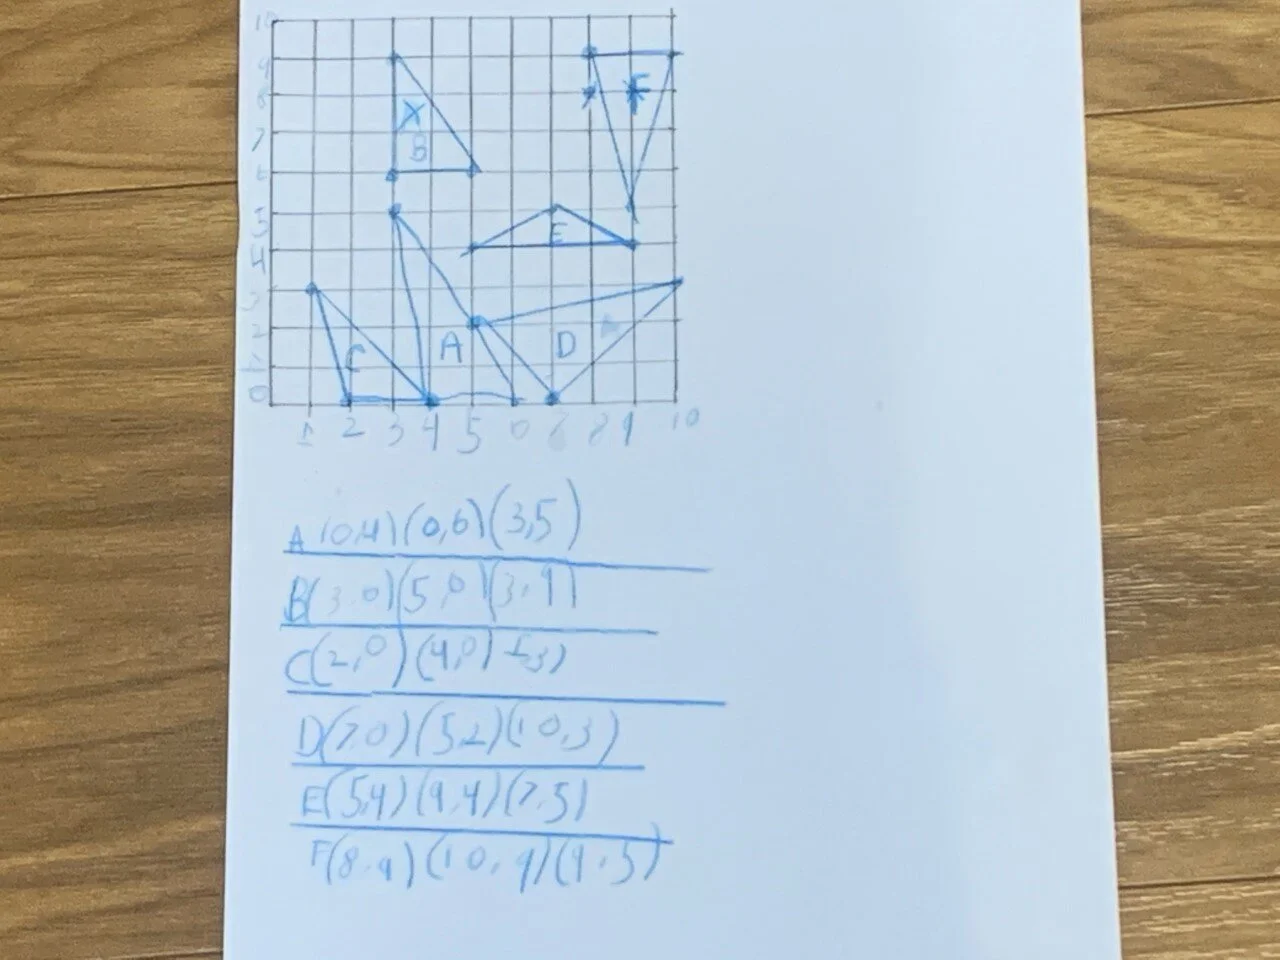 10
9
8
7
6
5
4
3
2
1
0
X
B
F
E
C
A
D
1 2 3 4 5 6 7 8 9 10
A (0,4) (0,6) (3,5)
B (3,0) (5,0) (3,9)
C (2,0) (4,0) 1,3)
D (7,0) (5,2) (10,3)
E (5,4) (9,4) (7,5)
F (8,9) (10,9) (9,5)